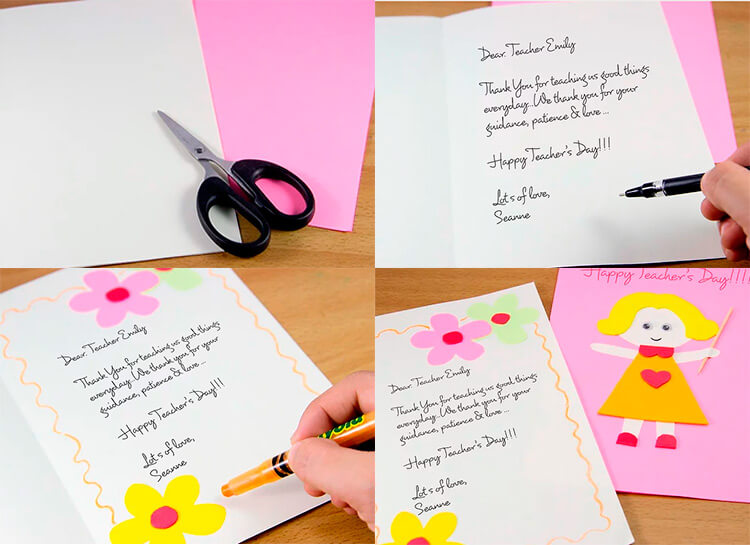 Dear. Teacher Emily
Thank You for teaching us good things
everyday...We thank you for your
guidance, patience & love ...
Happy Teacher's Day!!!
Lots of love,
Seanne
Dear. Teacher Emily
Thank You for teaching us good things
everyday. We thank you for your
guidance, patience & love...
Happy Teacher's Day!!!
Lots of love,
Seanne
Happy Teacher's Day!!!!
Dear. Teacher Emily
Thank You for teaching us good things
everyday...We thank you for your
guidance, patience & love ...
Happy Teacher's Day!!!
Lots of love,
Seanne